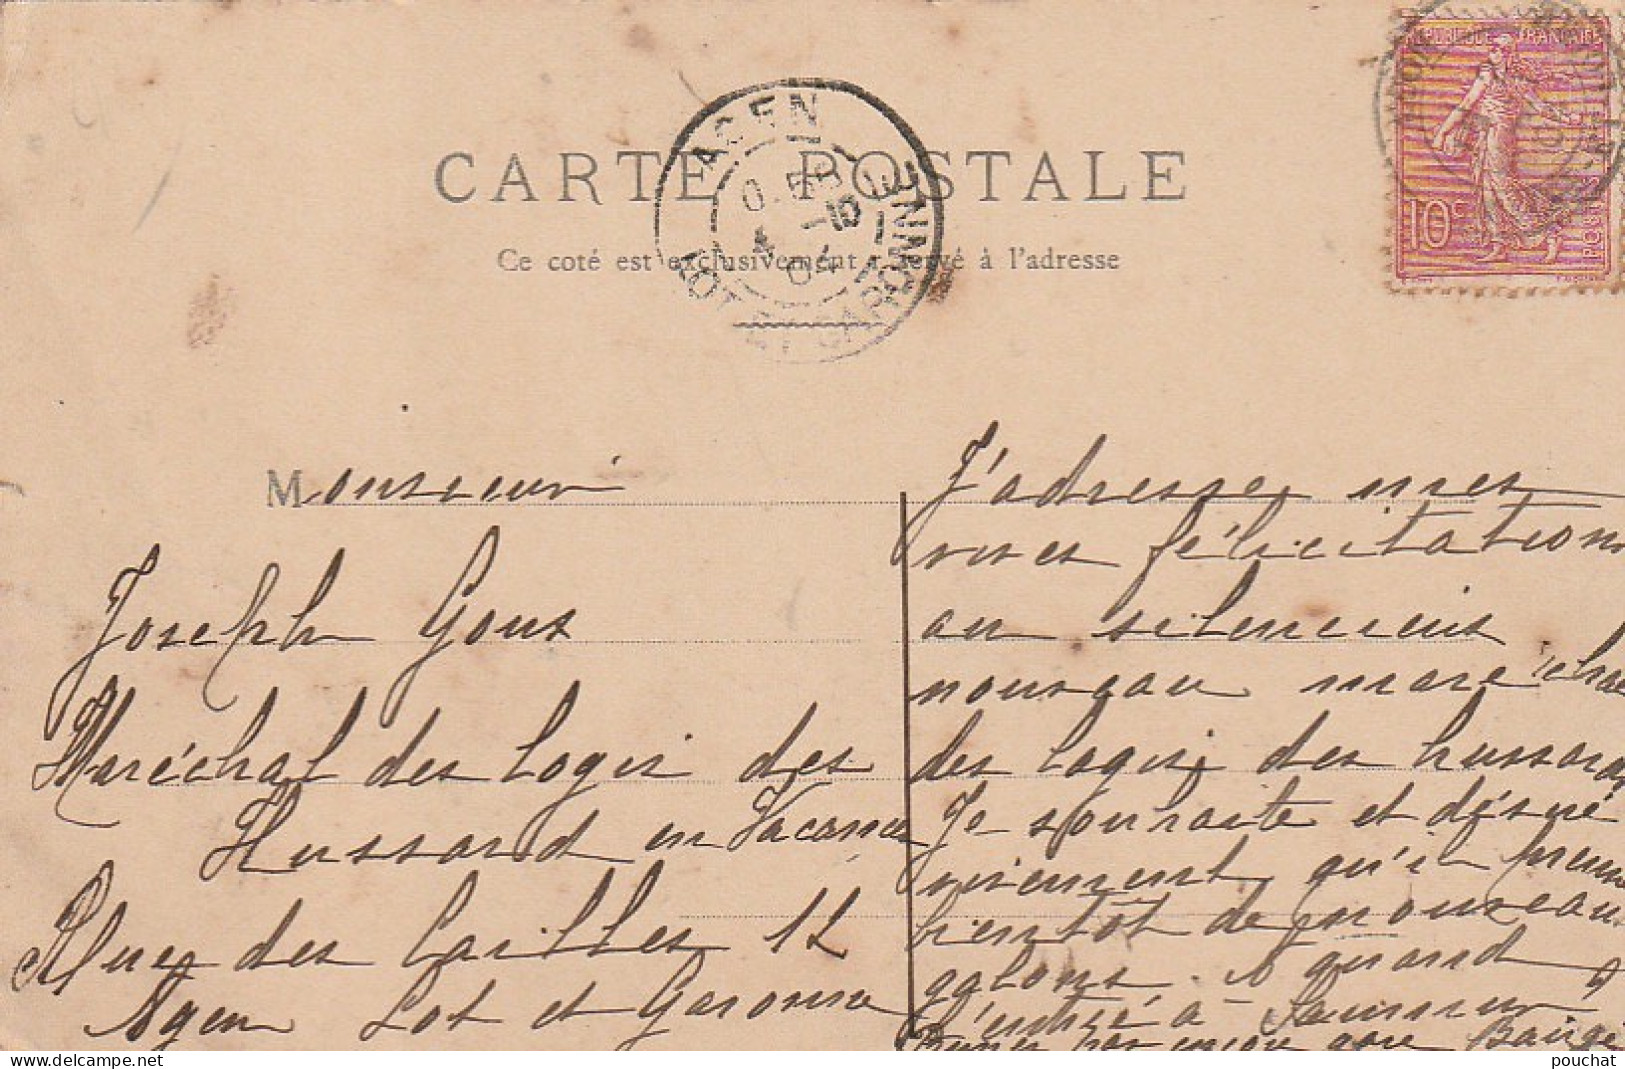 RÉPUBLIQUE FRANÇAISE
10c
POSTES
AGEN
LOT-ET-GARONNE
CARTE POSTALE
Ce coté est exclusivement réservé à l'adresse
Monsieur
Joseph Goux
Maréchal des logis des
Hussard en Vacances
Rue des Cailles 12
Agen Lot et Garonne
J'adresse mes
vives félicitations
au silencieux
nouveau maréchal
des logis des hussards
Je souhaite et désire
vivement qu'il prenne
bientôt de nouveaux
galons. A quand
l'entrée à Saumur ?
pouchat